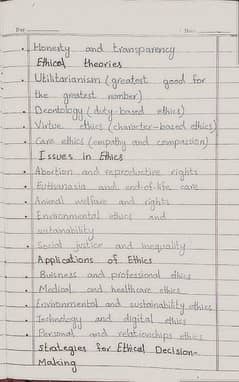 • Honesty and transparency
Ethical theories
• Utilitarianism (greatest good for
the greatest number)
• Deontology (duty-based ethics)
• Virtue ethics (character-based ethics)
• Care ethics (empathy and compassion)
Issues in Ethics
• Abortion and reproductive rights
• Euthanasia and end-of-life care
• Animal welfare and rights
• Environmental ethics and
sustainability
• Social justice and inequality
Applications of Ethics
• Buisness and professional ethics
• Medical and healthcare ethics
• Environmental and sustainability ethics
• Technology and digital ethics
• Personal and relationships ethics
Strategies for Ethical Decision-
Making